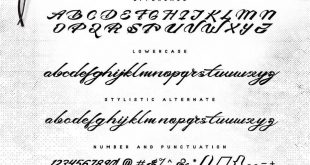 ABCDEFGHIJKLMN
OPQRSTUVWXYZ
LOWERCASE
abcdefghijklmnopqrstuvwxyz
STYLISTIC ALTERNATE
abcdefghijklmnopqrstuvwxyz
NUMBER AND PUNCTUATION
1234567890